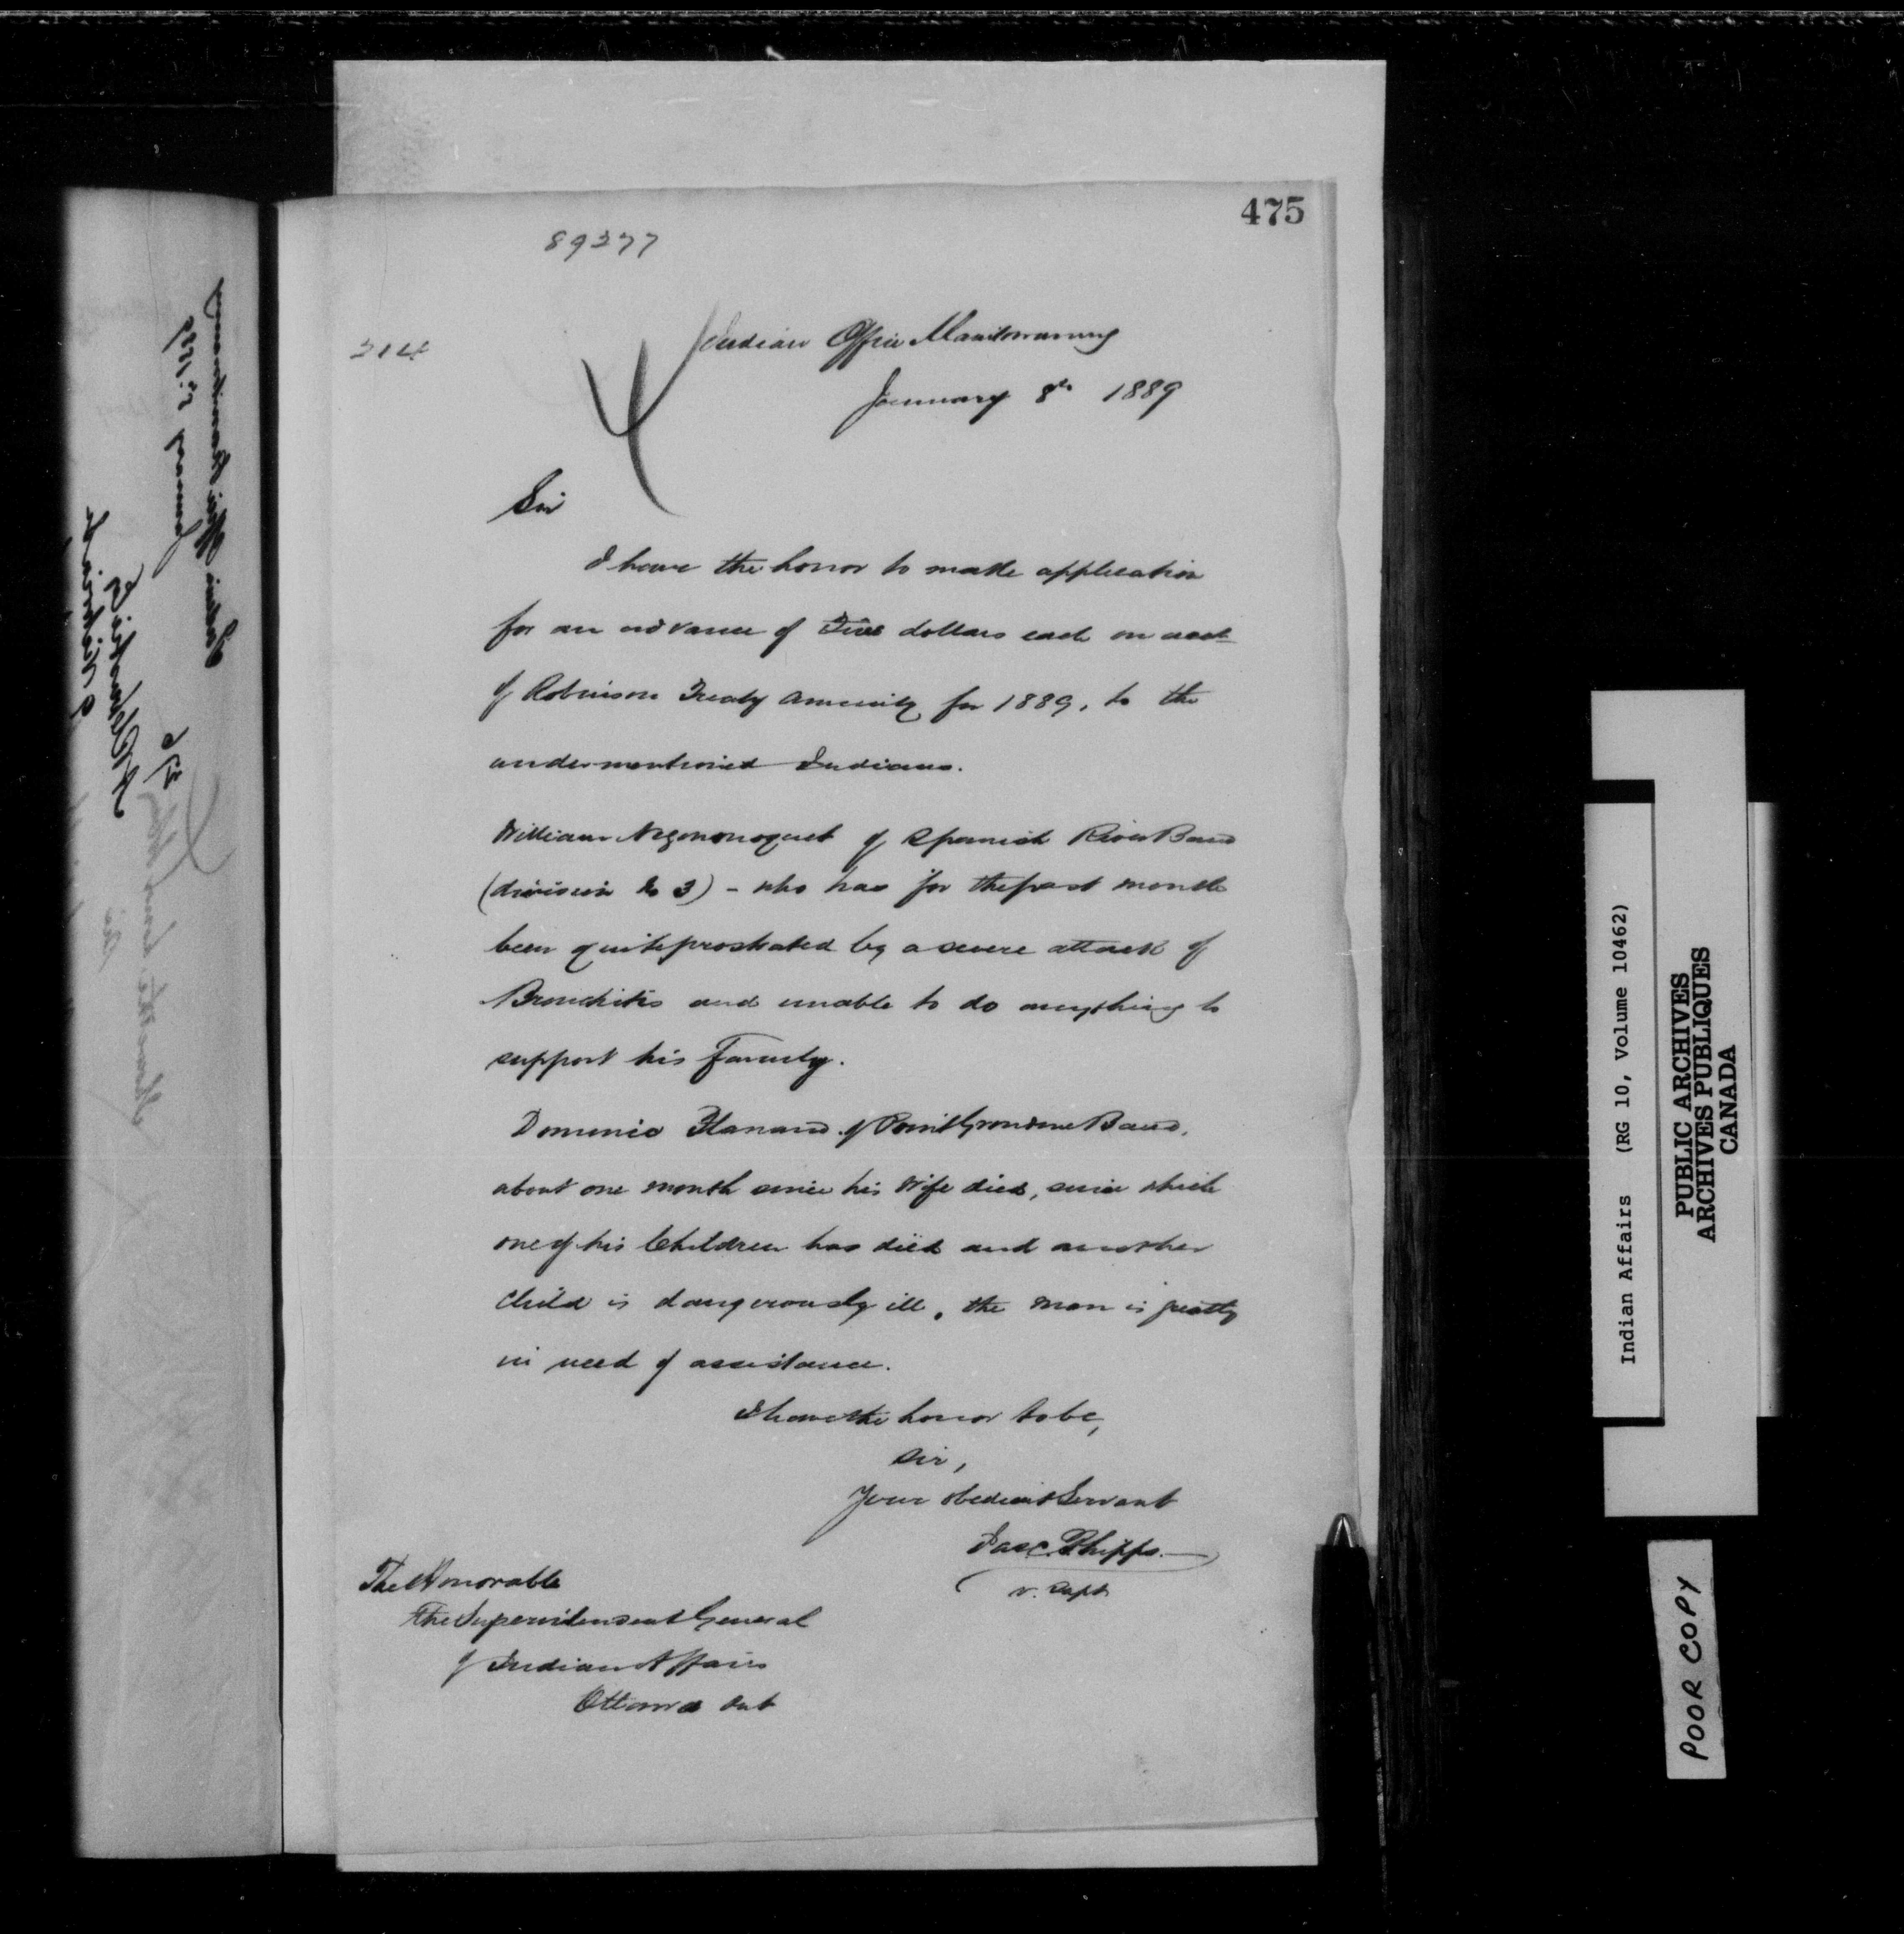 475
89277
214
Indian Office Manitowaning
January 8th 1889
Sir
I have the honor to make application
for an advance of Five dollars each on acct
of Robinson Treaty annuity for 1889, to the
undermentioned Indians.
William of Spanish River Band
(division No 3) - who has for the past month
been quite prostrated by a severe attack of
Bronchitis and unable to do anything to
support his Family.
Dominic of Point Grondine Band,
about one month since his Wife died, since which
one of his Children has died and another
child is dangerously ill, the man is greatly
in need of assistance.
I have the honor to be,
Sir,
Your obedient Servant
Jas C. Phipps
V. Supt
The Honorable
The Superintendent General
of Indian Affairs
Ottawa Ont
Indian Affairs (RG 10, Volume 10462)
PUBLIC ARCHIVES
ARCHIVES PUBLIQUES
CANADA
POOR COPY